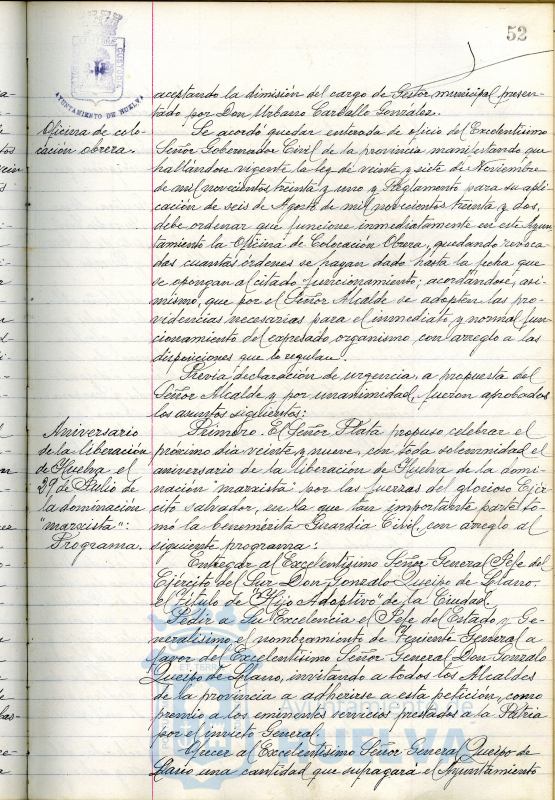 52
AYUNTAMIENTO DE HUELVA
aceptando la dimisión del cargo de Gestor municipal presen-
tado por Don Urbano Carballo González.
Oficina de colo-
cación obrera.
Se acordó quedar enterada de oficio del Excelentísimo
Señor Gobernador Civil de la provincia manifestando que
hallándose vigente la ley de veinte y siete de Noviembre
de mil novecientos treinta y uno y Reglamento para su apli-
cación de seis de Agosto de mil novecientos treinta y dos,
debe ordenar que funcione inmediatamente en este Ayun-
tamiento la Oficina de Colocación Obrera, quedando revoca-
das cuantas órdenes se hayan dado hasta la fecha que
se opongan al citado funcionamiento; acordándose, asi-
mismo, que por el Señor Alcalde se adopten las pro-
videncias necesarias para el inmediato y normal fun-
cionamiento del expresado organismo con arreglo a las
disposiciones que lo regulan.
Previa declaración de urgencia, a propuesta del
Señor Alcalde y por unanimidad, fueron aprobados
los asuntos siguientes:
Aniversario
de la liberación
de Huelva el
29 de Julio de
la dominación
"marxista":
Programa.
Primero. El Señor Plata propuso celebrar el
próximo día veinte y nueve, con toda solemnidad el
aniversario de la liberación de Huelva de la domi-
nación "marxista" por las fuerzas del glorioso Ejér-
cito salvador, en la que tan importante parte to-
mó la benemérita Guardia Civil, con arreglo al
siguiente programa:
Entregar al Excelentísimo Señor General Jefe del
Ejército del Sur Don Gonzalo Queipo de Llano,
el Título de "Hijo Adoptivo" de la Ciudad.
Pedir a Su Excelencia el Jefe del Estado y Ge-
neralísimo el nombramiento de Teniente General a
favor del Excelentísimo Señor General Don Gonzalo
Queipo de Llano, invitando a todos los Alcaldes
de la provincia a adherirse a esta petición, como
premio a los eminentes servicios prestados a la Patria
por el invicto General.
Ofrecer al Excelentísimo Señor General Queipo de
Llano una cantidad que sufragará el Ayuntamiento
Ayuntamiento de
HUELVA